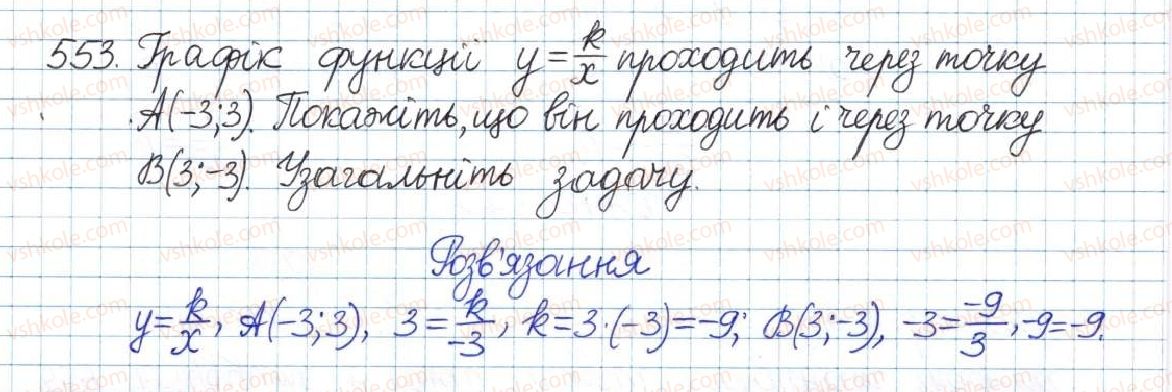 553. Графік функції y = k/x проходить через точку
A(-3;3). Покажіть, що він проходить і через точку
B(3;-3). Узагальніть задачу.
Розв'язання
y = k/x, A(-3;3), 3 = k/-3, k = 3·(-3) = -9; B(3;-3), -3 = -9/3, -9 = -9.